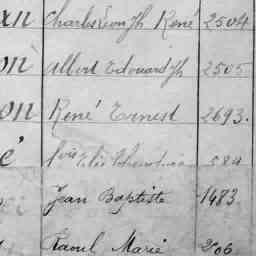 an Charles Leon Jh René 2504
on Albert Edouard Jh 2505
on René Ernest 2693.
é
Jean Baptiste 1483
Raoul Marie 206